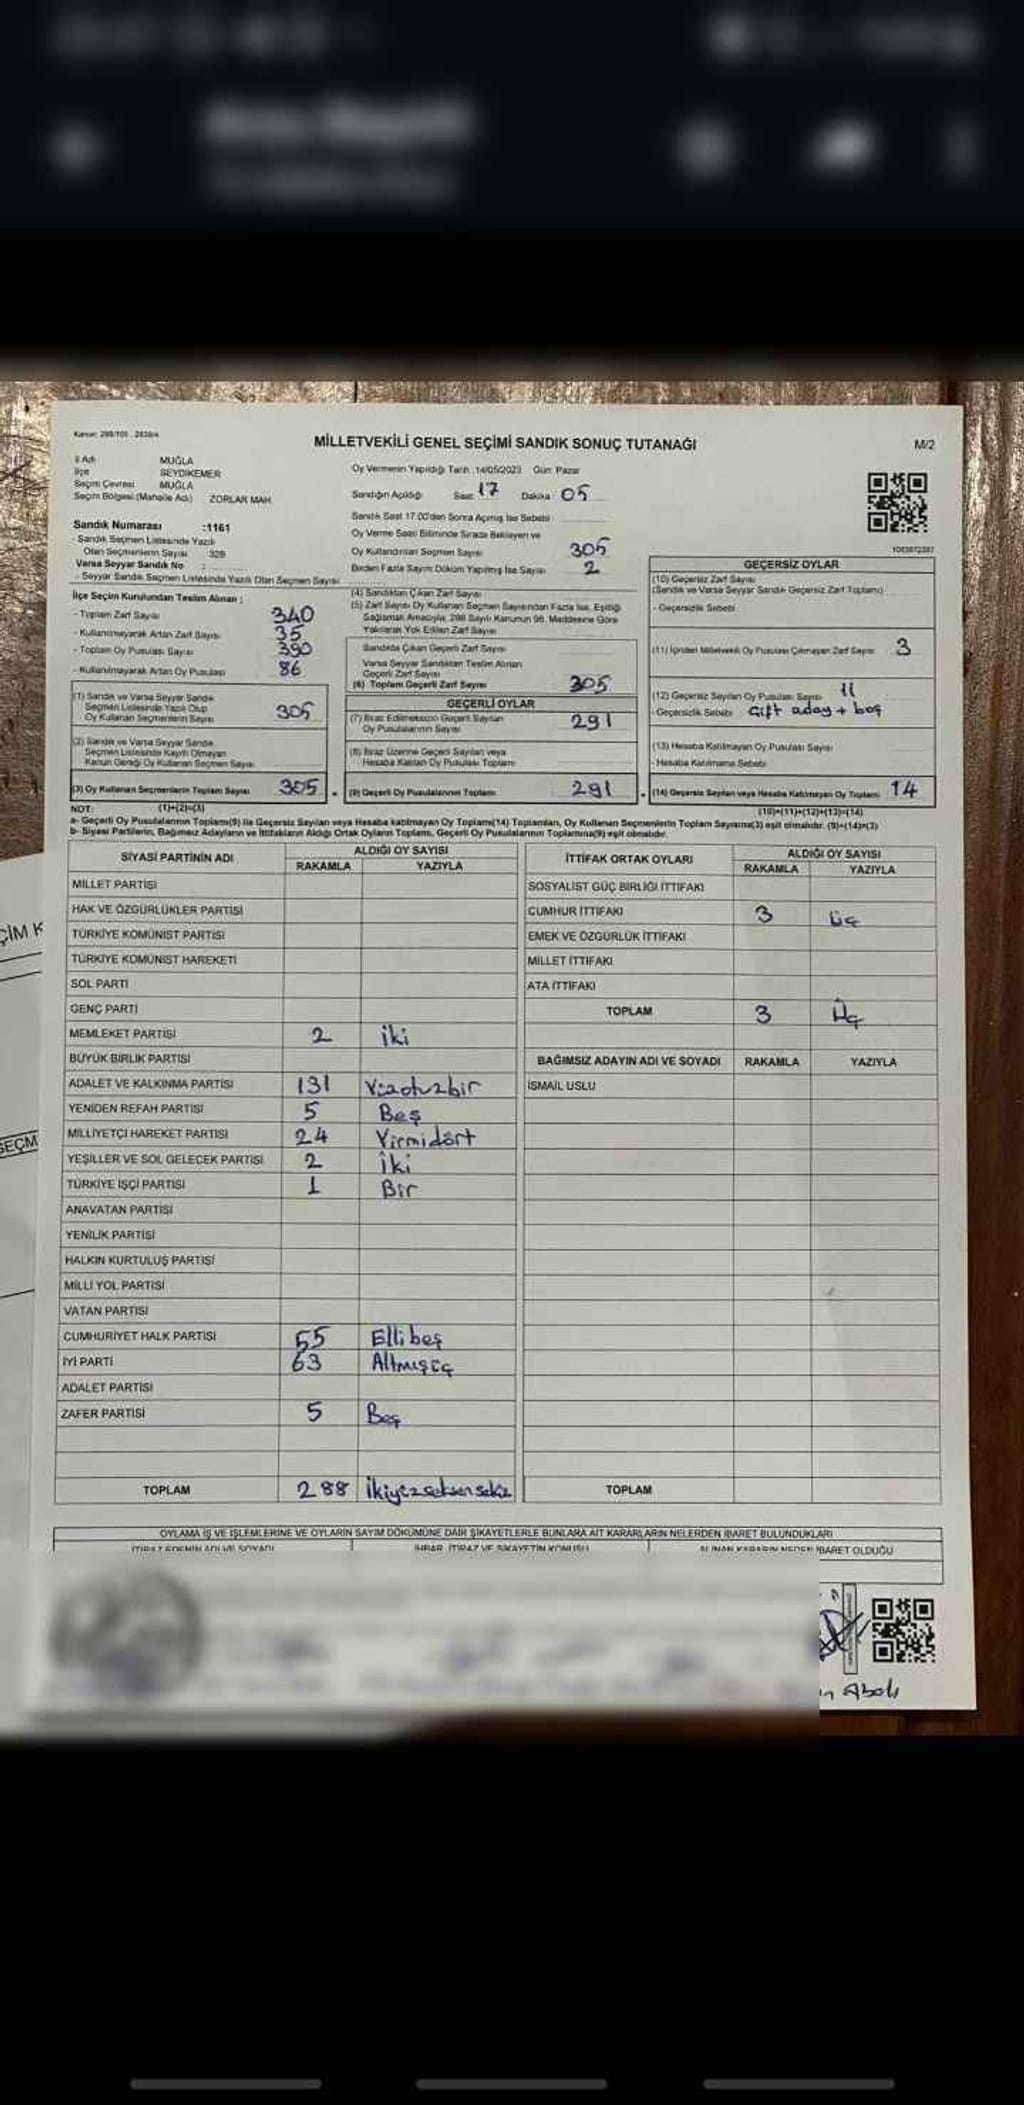 Kanun: 298/105 , 2839/4
MİLLETVEKİLİ GENEL SEÇİMİ SANDIK SONUÇ TUTANAĞI
M/2
İl Adı MUĞLA
İlçe SEYDİKEMER
Seçim Çevresi MUĞLA
Seçim Bölgesi (Mahalle Adı) ZORLAR MAH.
Oy Vermenin Yapıldığı Tarih :14/05/2023 Gün: Pazar
Sandığın Açıldığı Saat: 17 Dakika 05
Sandık Saat 17.00'den Sonra Açılmış İse Sebebi
Sandık Numarası :1161
- Sandık Seçmen Listesinde Yazılı
Olan Seçmenlerin Sayısı 326
Varsa Seyyar Sandık No :
- Seyyar Sandık Seçmen Listesinde Yazılı Olan Seçmen Sayısı
Oy Verme Saati Bitiminde Sırada Bekleyen ve
Oy Kullandırılan Seçmen Sayısı 305
Birden Fazla Sayım Döküm Yapılmış İse Sayısı 2
İlçe Seçim Kurulundan Teslim Alınan :
- Toplam Zarf Sayısı 340
- Kullanılmayarak Artan Zarf Sayısı 35
- Toplam Oy Pusulası Sayısı 390
- Kullanılmayarak Artan Oy Pusulası 86
(1) Sandık ve Varsa Seyyar Sandık
Seçmen Listesinde Yazılı Olup
Oy Kullanan Seçmenlerin Sayısı 305
(2) Sandık ve Varsa Seyyar Sandık
Seçmen Listesinde Kayıtlı Olmayan
Kanun Gereği Oy Kullanan Seçmen Sayısı
(3) Oy Kullanan Seçmenlerin Toplam Sayısı 305
(1)+(2)=(3)
(4) Sandıktan Çıkan Zarf Sayısı
(5) Zarf Sayısı Oy Kullanan Seçmen Sayısından Fazla İse, Eşitliği
Sağlamak Amacıyla, 298 Sayılı Kanunun 98. Maddesine Göre
Yakılarak Yok Edilen Zarf Sayısı
Sandıkta Çıkan Geçerli Zarf Sayısı
Varsa Seyyar Sandıktan Teslim Alınan
Geçerli Zarf Sayısı
(6) Toplam Geçerli Zarf Sayısı 305
GEÇERLİ OYLAR
(7) İtiraz Edilmeksizin Geçerli Sayılan
Oy Pusulalarının Sayısı 291
(8) İtiraz Üzerine Geçerli Sayılan veya
Hesaba Katılan Oy Pusulası Toplamı
(9) Geçerli Oy Pusulalarının Toplamı 291
1083872387
GEÇERSİZ OYLAR
(10) Geçersiz Zarf Sayısı
(Sandık ve Varsa Seyyar Sandık Geçersiz Zarf Toplamı)
- Geçersizlik Sebebi
(11) İçinden Milletvekili Oy Pusulası Çıkmayan Zarf Sayısı 3
(12) Geçersiz Sayılan Oy Pusulası Sayısı 11
- Geçersizlik Sebebi Çift aday + boş
(13) Hesaba Katılmayan Oy Pusulası Sayısı
- Hesaba Katılmama Sebebi
(14) Geçersiz Sayılan veya Hesaba Katılmayan Oy Toplamı 14
(10)+(11)+(12)+(13)=(14)
NOT:
a- Geçerli Oy Pusulalarının Toplamı(9) ile Geçersiz Sayılan veya Hesaba katılmayan Oy Toplamı(14) Toplamları, Oy Kullanan Seçmenlerin Toplam Sayısına(3) eşit olmalıdır. (9)+(14)=(3)
b- Siyasi Partilerin, Bağımsız Adayların ve İttifakların Aldığı Ortak Oyların Toplamı, Geçerli Oy Pusulalarının Toplamına(9) eşit olmalıdır.
SİYASİ PARTİNİN ADI ALDIĞI OY SAYISI
RAKAMLA YAZIYLA
MİLLET PARTİSİ
HAK VE ÖZGÜRLÜKLER PARTİSİ
TÜRKİYE KOMÜNİST PARTİSİ
TÜRKİYE KOMÜNİST HAREKETİ
SOL PARTİ
GENÇ PARTİ
MEMLEKET PARTİSİ 2 iki
BÜYÜK BİRLİK PARTİSİ
ADALET VE KALKINMA PARTİSİ 131 Yüzotuzbir
YENİDEN REFAH PARTİSİ 5 Beş
MİLLİYETÇİ HAREKET PARTİSİ 24 Yirmidört
YEŞİLLER VE SOL GELECEK PARTİSİ 2 İki
TÜRKİYE İŞÇİ PARTİSİ 1 Bir
ANAVATAN PARTİSİ
YENİLİK PARTİSİ
HALKIN KURTULUŞ PARTİSİ
MİLLİ YOL PARTİSİ
VATAN PARTİSİ
CUMHURİYET HALK PARTİSİ 55 Ellibeş
İYİ PARTİ 63 Altmışüç
ADALET PARTİSİ
ZAFER PARTİSİ 5 Beş
TOPLAM 288 İkiyüzseksensekiz
İTTİFAK ORTAK OYLARI ALDIĞI OY SAYISI
RAKAMLA YAZIYLA
SOSYALİST GÜÇ BİRLİĞİ İTTİFAKI
CUMHUR İTTİFAKI 3 üç
EMEK VE ÖZGÜRLÜK İTTİFAKI
MİLLET İTTİFAKI
ATA İTTİFAKI
TOPLAM 3 Üç
BAĞIMSIZ ADAYIN ADI VE SOYADI RAKAMLA YAZIYLA
İSMAİL USLU
TOPLAM
OYLAMA İŞ VE İŞLEMLERİNE VE OYLARIN SAYIM DÖKÜMÜNE DAİR ŞİKAYETLERLE BUNLARA AİT KARARLARIN NELERDEN İBARET BULUNDUKLARI
İTİRAZ EDENİN ADI VE SOYADI İHBAR, İTİRAZ VE ŞİKAYETİN KONUSU ALINAN KARARIN NEDEN İBARET OLDUĞU
ÇİM K
SEÇM